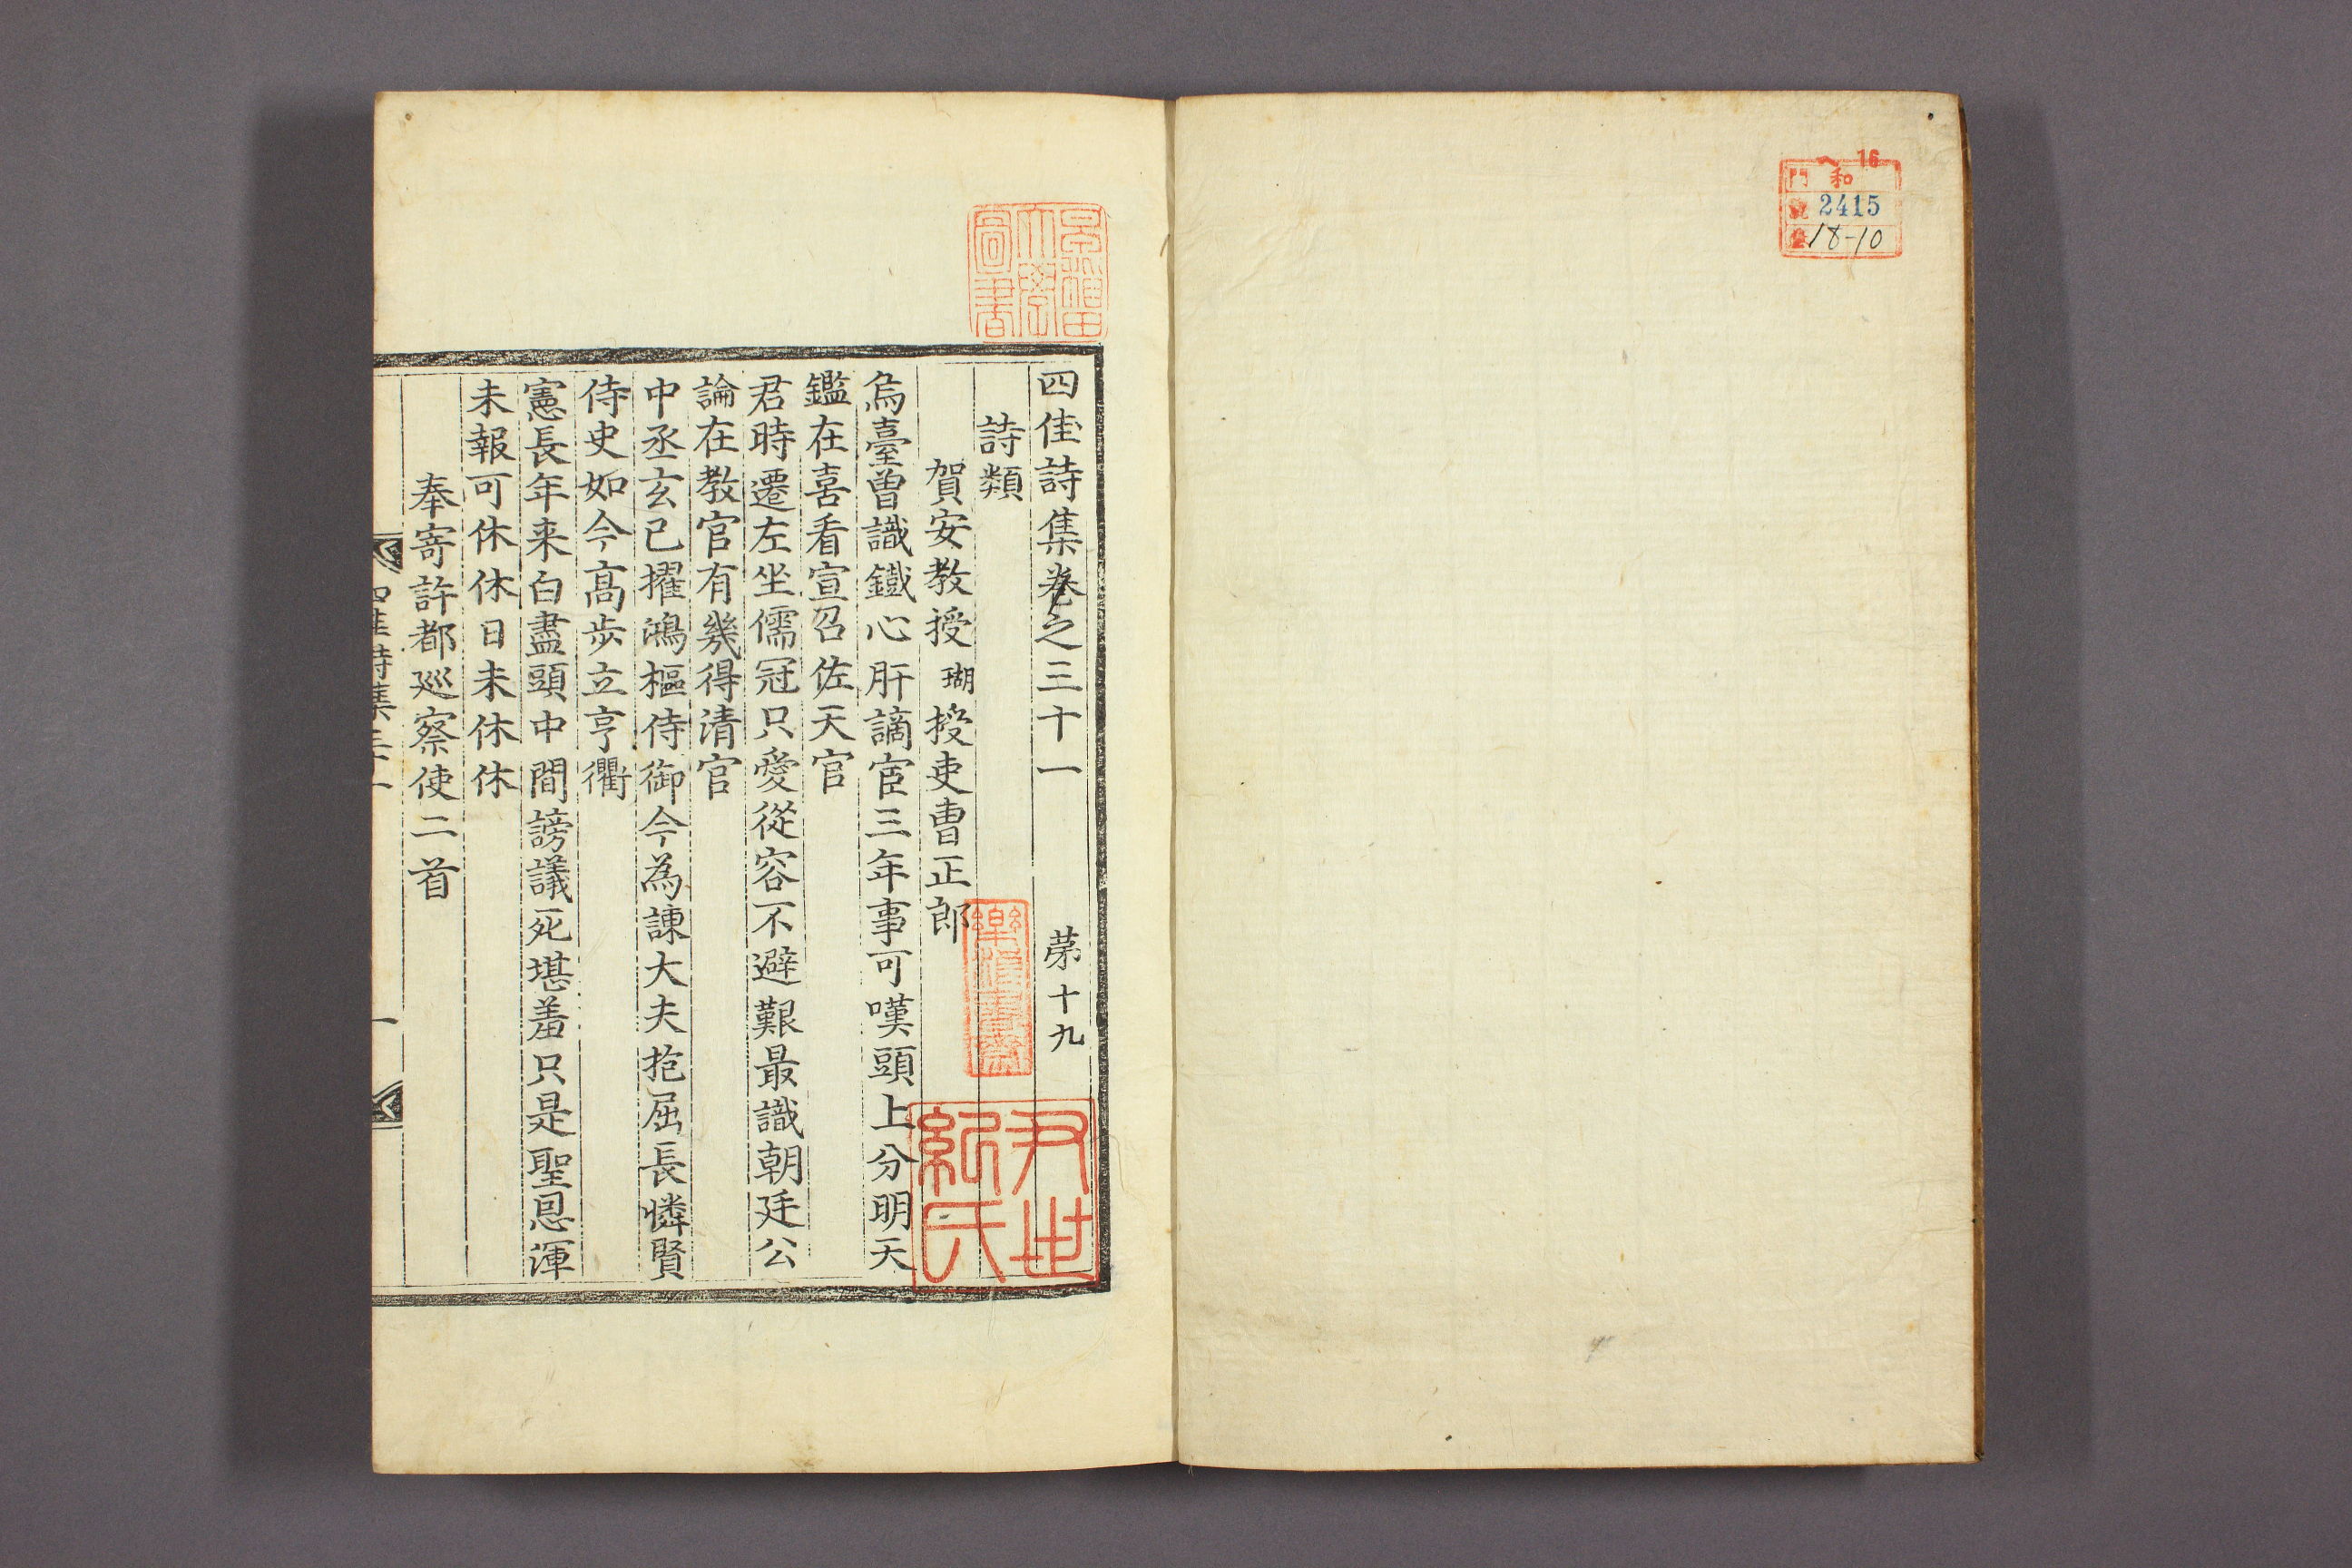 16
門 和
號 2415
卷 18-10
早稲田大學圖書
四佳詩集卷之三十一 苐十九
詩類
賀安教授 瑚 授吏曹正郎
烏臺曽識鐵心肝謫宦三年事可嘆頭上分明天
鑑在喜看宣召佐天官
君時遷左坐儒冠只愛從容不避艱最識朝廷公
論在教官有幾得清官
中丞玄已擢鴻樞侍御今為諫大夫抱屈長憐賢
侍史如今高步立亨衢
憲長年来白盡頭中間謗議死堪羞只是聖恩渾
未報可休休日未休休
奉寄許都巡察使二首
四佳詩集三十一 一
尹世紀氏